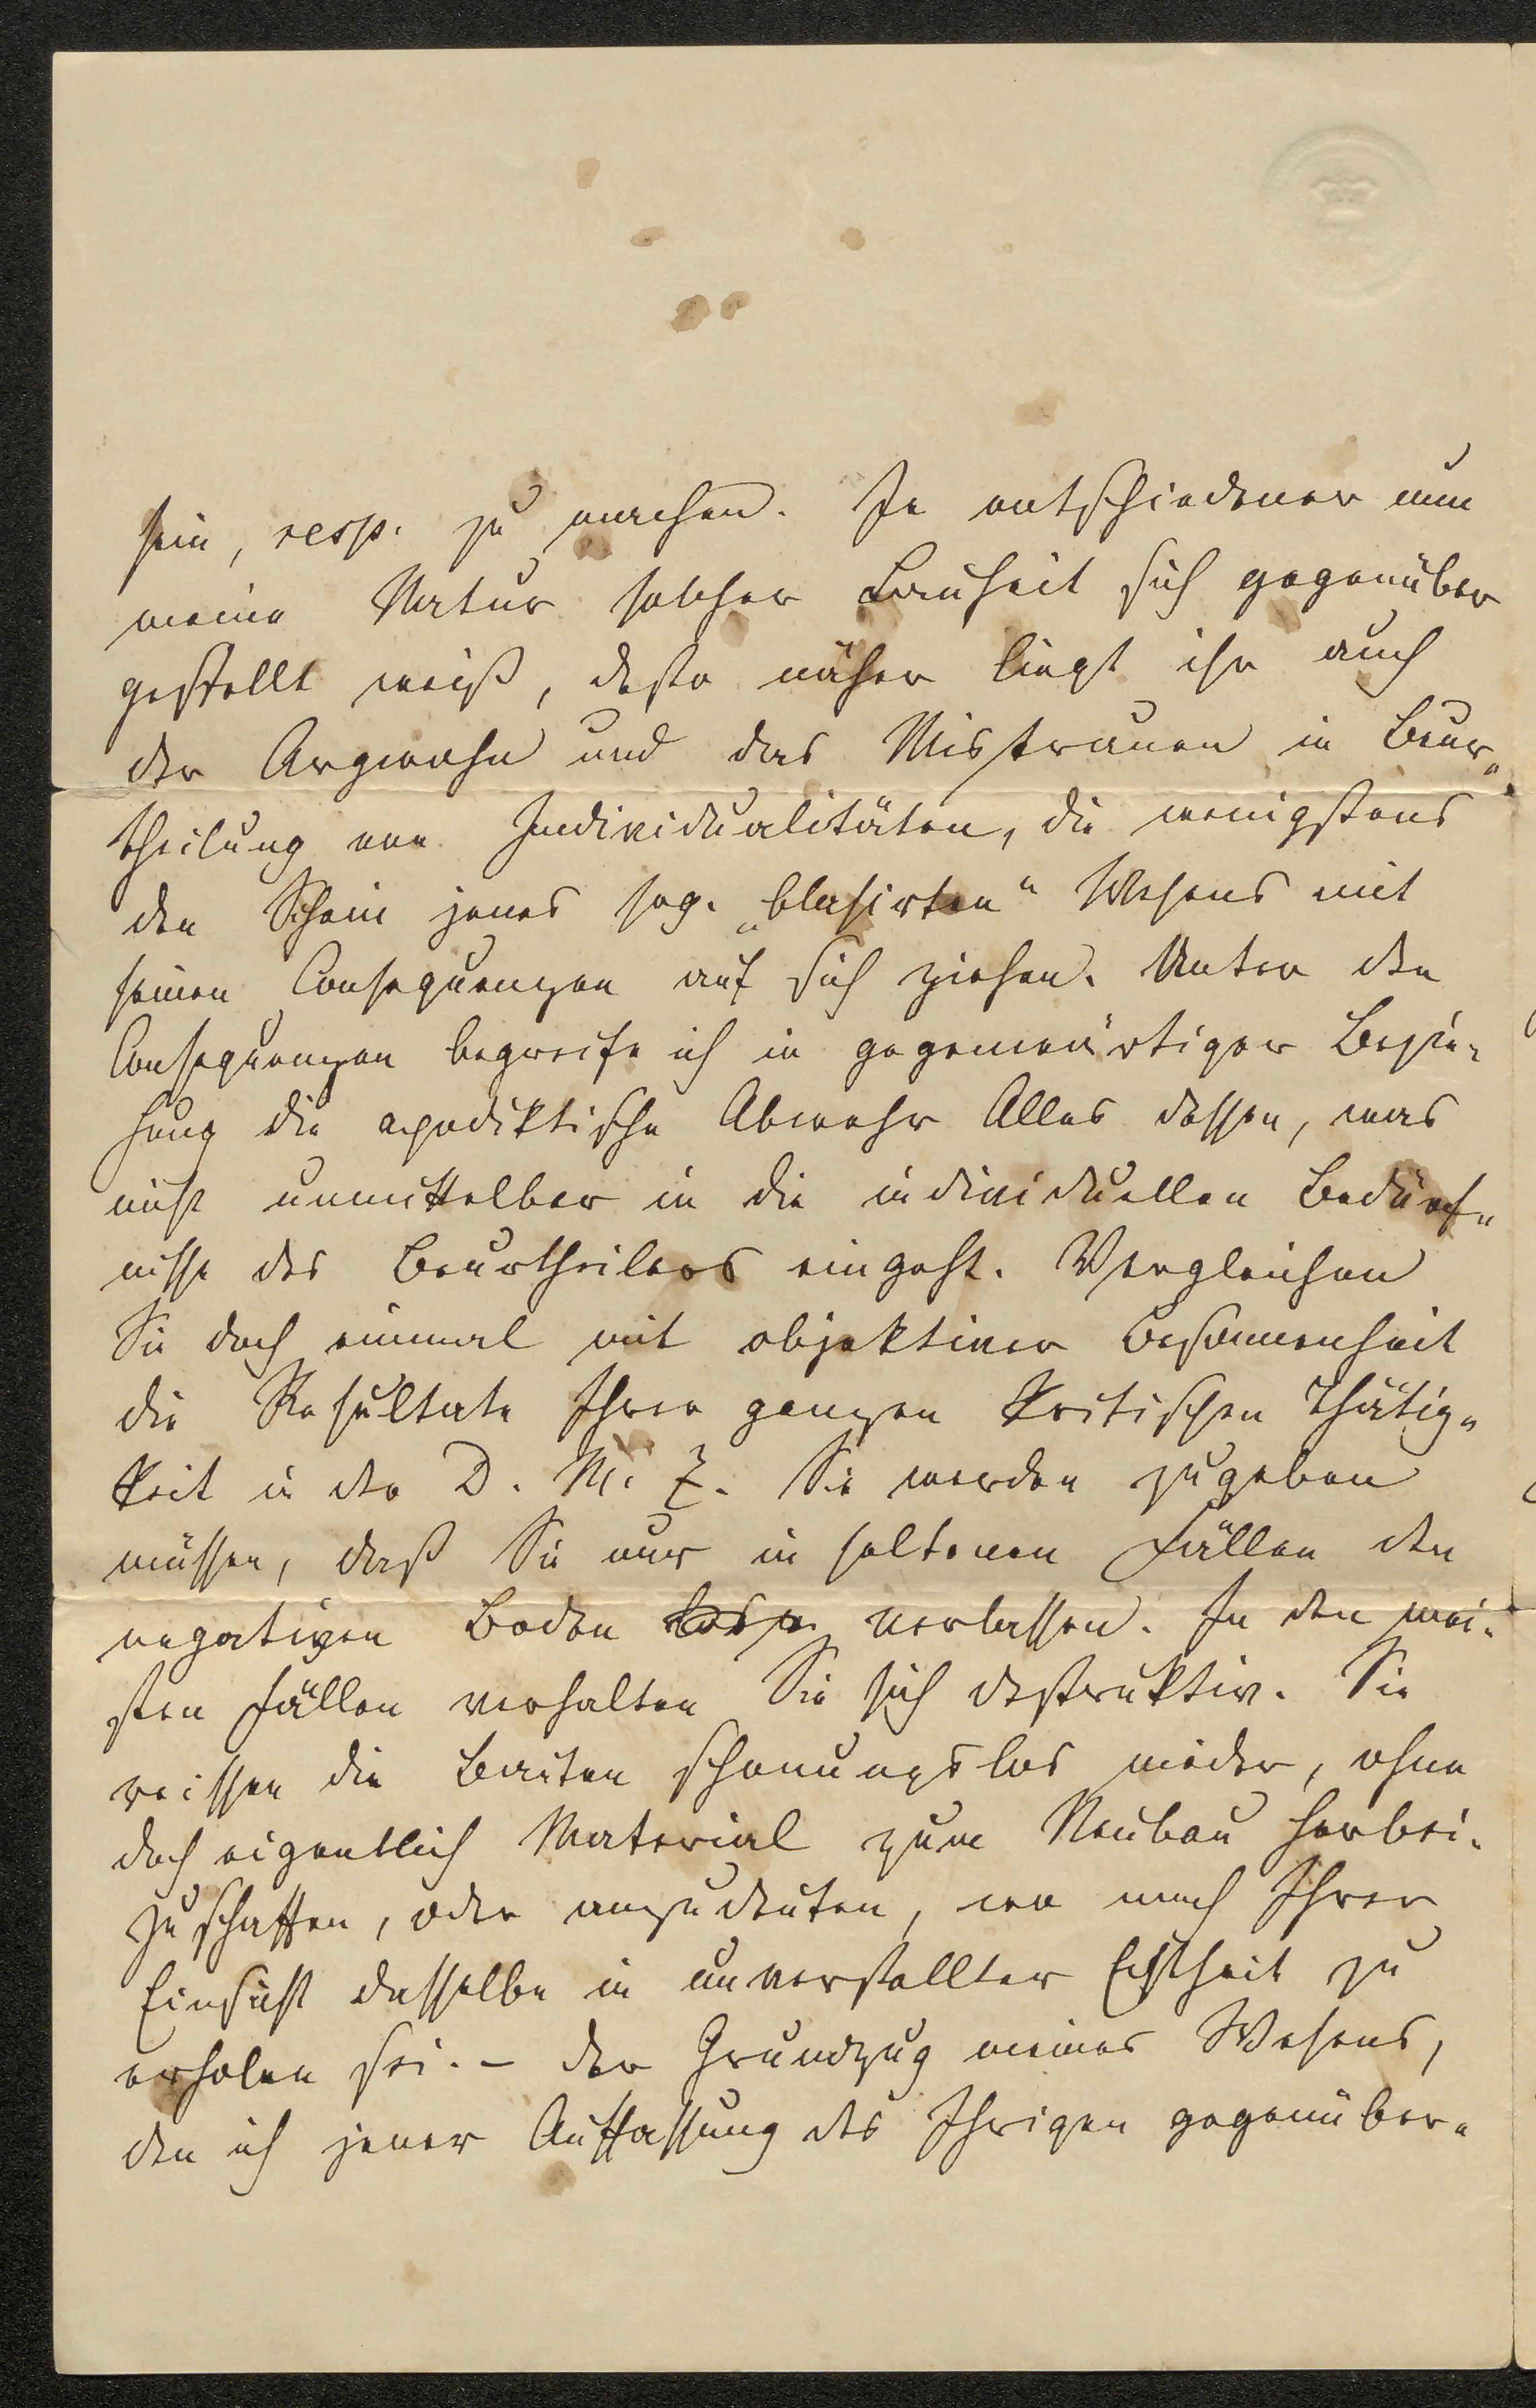 sein, resp. zu machen. Je entschiedener nun
meine Natur solcher Lauheit sich gegenüber
gestellt weiß, desto näher liegt ihr auch
der Argwohn und das Mistrauen in Beur-
theilung von Individualitäten, die wenigstens
den Schein jenes sog. „blasirten“ Wesens mit
seinen Consequenzen auf sich ziehen. Unter den
Consequenzen begreife ich in gegenwärtiger Bezie-
hung die apodiktische Abwehr Alles dessen, was
nicht unmittelbar in die individuellen Bedürf-
nisse des Beurtheilers eingeht. Vergleichen
Sie doch einmal mit objektiver Besonnenheit
die Resultate Ihrer ganzen kritischen Thätig-
keit in der D. M. Z. Sie werden zugeben
müssen, daß Sie nur in seltenen Fällen den
negativen Boden verlassen. In den mei-
sten Fällen verhalten Sie sich destruktiv. Sie
reissen die Bauten schonungslos nieder, ohne
doch eigentlich Material zum Neubau herbei-
zuschaffen, oder anzudeuten, wo nach Ihrer
Einsicht dasselbe in unverstellter Echtheit zu
erholen sei. – Der Grundzug meines Wesens,
den ich jener Auffassung des Ihrigen gegenüber-